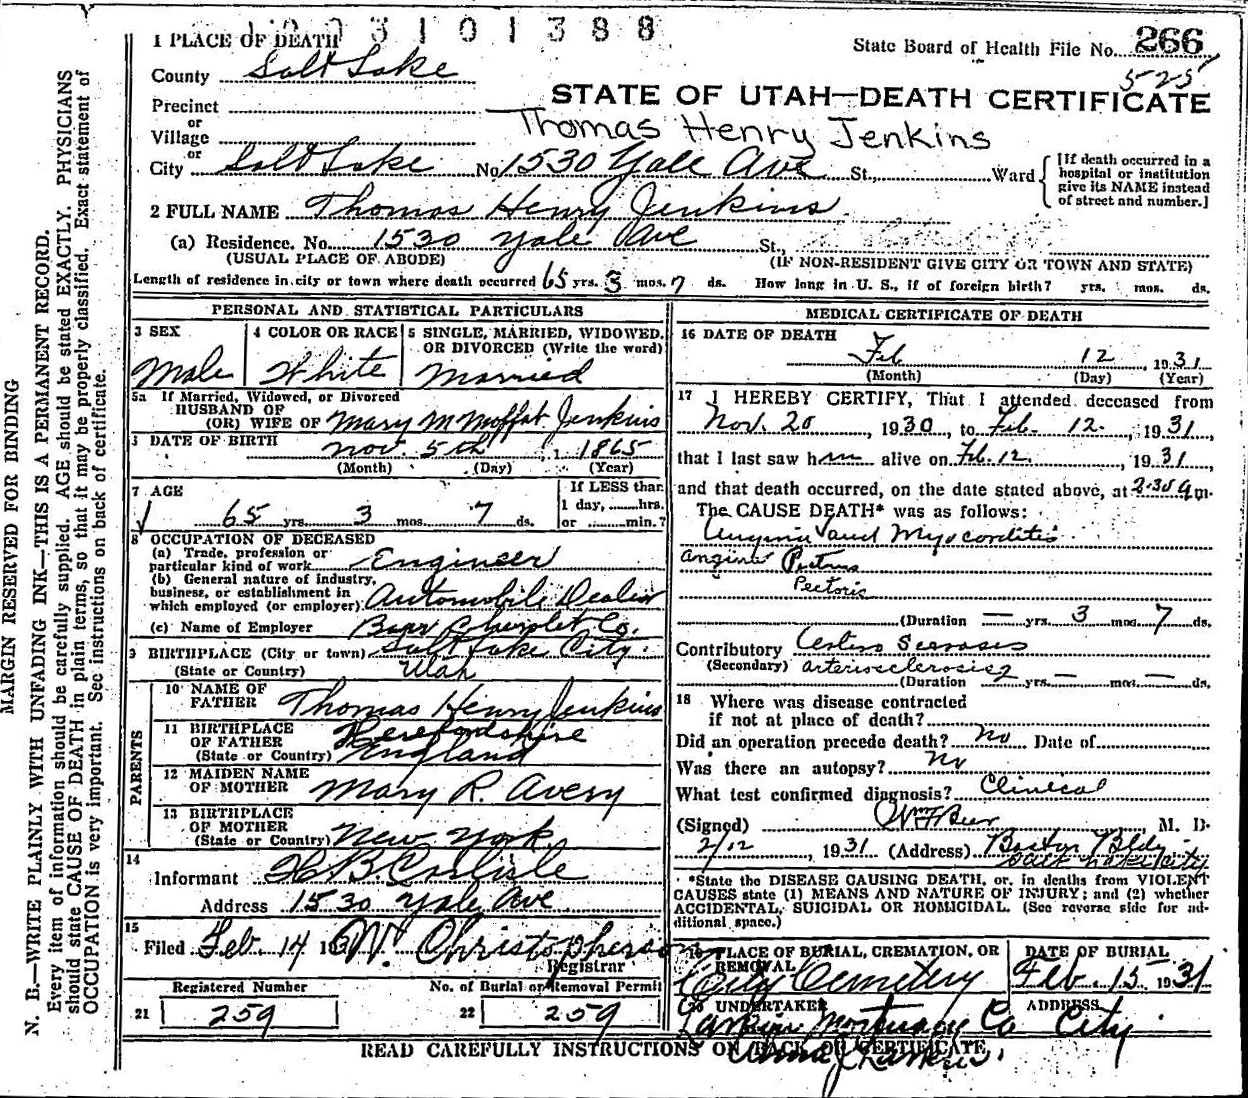 3 1 0 1 3 8 8
1 PLACE OF DEATH
State Board of Health File No. 266
County Salt Lake
525
STATE OF UTAH—DEATH CERTIFICATE
Precinct
or
Village
Thomas Henry Jenkins
or
City Salt Lake No 1530 Yale Ave St., Ward
[If death occurred in a hospital or institution give its NAME instead of street and number.]
2 FULL NAME Thomas Henry Jenkins
(a) Residence. No. 1530 Yale Ave St.,
(USUAL PLACE OF ABODE) (IF NON-RESIDENT GIVE CITY OR TOWN AND STATE)
Length of residence in city or town where death occurred 65 yrs. 3 mos. 7 ds. How long in U. S., if of foreign birth? yrs. mos. ds.
PERSONAL AND STATISTICAL PARTICULARS
3 SEX 4 COLOR OR RACE 5 SINGLE, MARRIED, WIDOWED, OR DIVORCED (Write the word)
Male White Married
5a If Married, Widowed, or Divorced
HUSBAND OF
(OR) WIFE OF Mary M Moffat Jenkins
DATE OF BIRTH Nov. 5th 1865
(Month) (Day) (Year)
7 AGE
65 yrs. 3 mos. 7 ds.
If LESS than
1 day, hrs.
or min.?
8 OCCUPATION OF DECEASED
(a) Trade, profession or
particular kind of work Engineer
(b) General nature of industry,
business, or establishment in
which employed (or employer) Automobile Dealer
(c) Name of Employer Chevrolet Co.
9 BIRTHPLACE (City or town) Salt Lake City.
(State or Country) Utah
PARENTS
10 NAME OF
FATHER Thomas Henry Jenkins
11 BIRTHPLACE
OF FATHER
(State or Country) Herefordshire England
12 MAIDEN NAME
OF MOTHER Mary R. Avery
13 BIRTHPLACE
OF MOTHER
(State or Country) New York
14
Informant H B Carlisle
Address 1530 Yale Ave
15
Filed Feb. 14 1931 W. Christopherson
Registrar
Registered Number No. of Burial or Removal Permit
21 259 22 259
MEDICAL CERTIFICATE OF DEATH
16 DATE OF DEATH
Feb 12, 1931
(Month) (Day) (Year)
17 I HEREBY CERTIFY, That I attended deceased from
Nov. 20, 1930, to Feb. 12., 1931,
that I last saw him alive on Feb. 12, 1931,
and that death occurred, on the date stated above, at 2:30 a m.
The CAUSE DEATH* was as follows:
Angina and Myocarditis
angina Pectoris
Pectoris
(Duration — yrs. 3 mos. 7 ds.
Contributory Arterio Sclerosis
(Secondary) arteriosclerosis
(Duration 2 yrs. — mos. — ds.
18 Where was disease contracted
if not at place of death?
Did an operation precede death? No Date of
Was there an autopsy? No
What test confirmed diagnosis? Clinical
(Signed) Wm F Beer, M. D.
2/12, 1931 (Address) Boston Bldg
Salt Lake City
*State the DISEASE CAUSING DEATH, or, in deaths from VIOLENT
CAUSES state (1) MEANS AND NATURE OF INJURY; and (2) whether
ACCIDENTAL, SUICIDAL OR HOMICIDAL. (See reverse side for additional space.)
19 PLACE OF BURIAL, CREMATION, OR REMOVAL DATE OF BURIAL
City Cemetery Feb. 15 1931
20 UNDERTAKER ADDRESS
Larkin Mortuary Co City.
READ CAREFULLY INSTRUCTIONS ON BACK OF CERTIFICATE
MARGIN RESERVED FOR BINDING
N. B.—WRITE PLAINLY WITH UNFADING INK—THIS IS A PERMANENT RECORD.
Every item of information should be carefully supplied. AGE should be stated EXACTLY. PHYSICIANS
should state CAUSE OF DEATH in plain terms, so that it may be properly classified. Exact statement of
OCCUPATION is very important. See instructions on back of certificate.